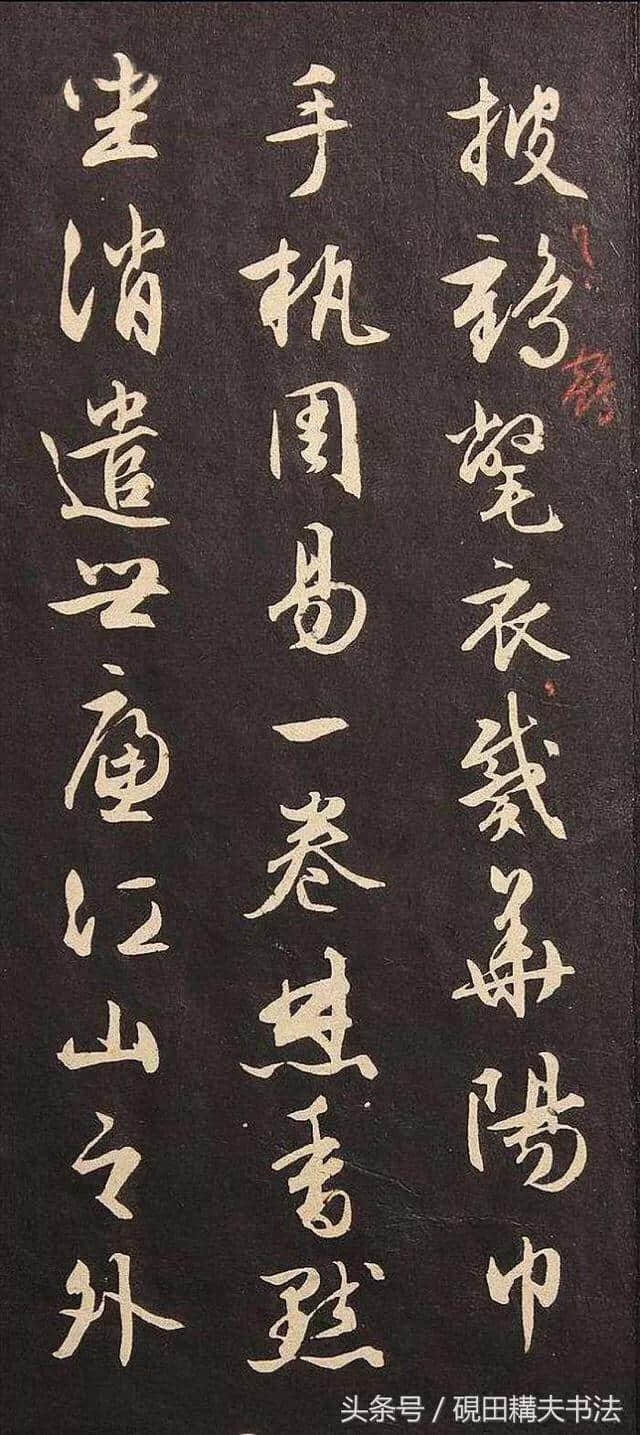 披鶴氅衣戴華陽巾
手執周易一卷焚香默
坐消遣世慮江山之外
鶴
头条号／硯田耩夫书法